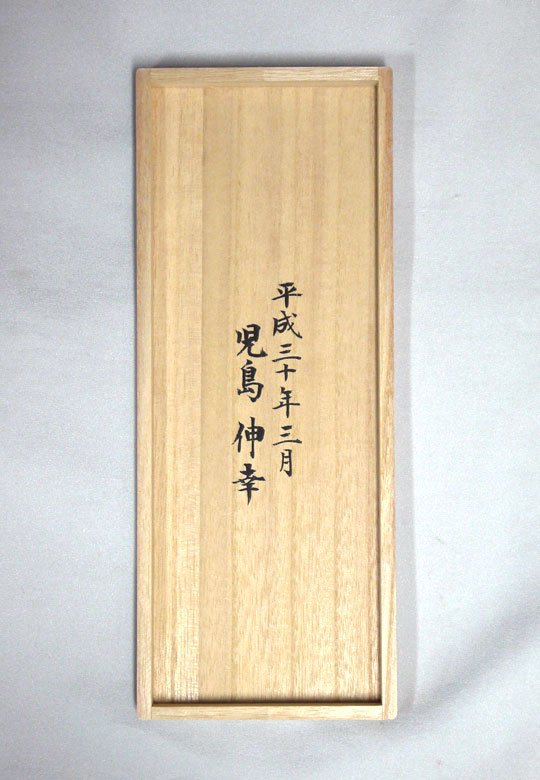 平成三十年三月
児島伸幸